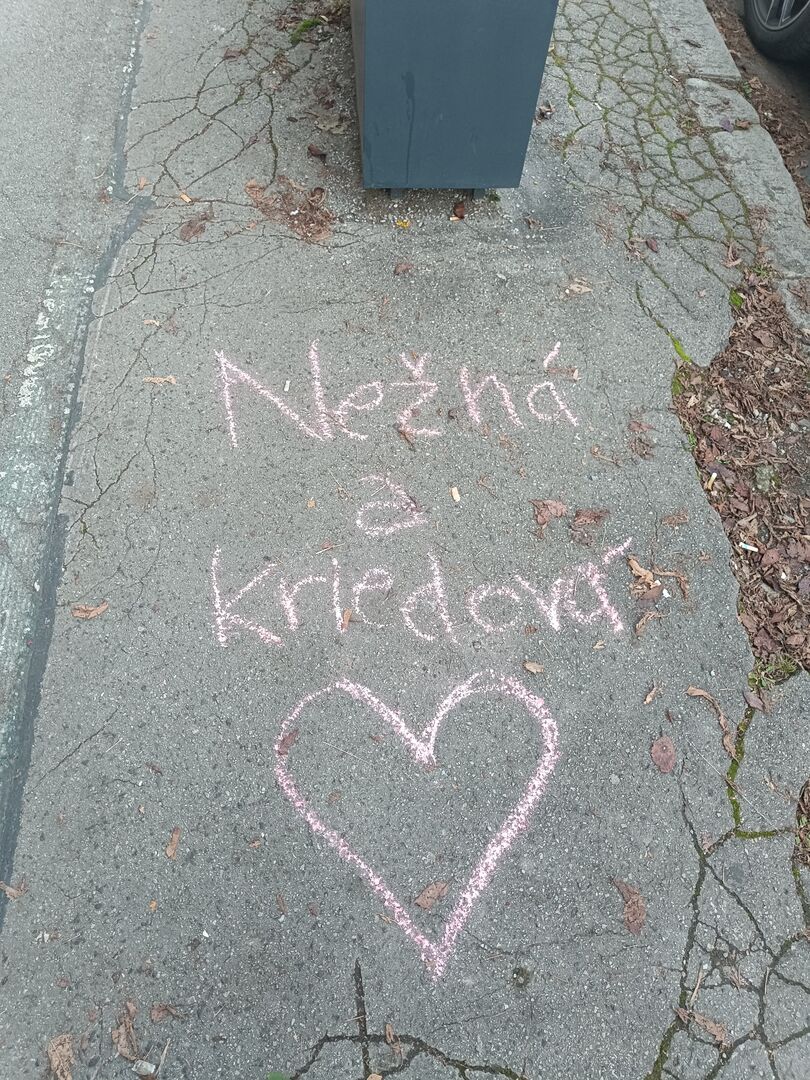 Nežná
a
kriedová